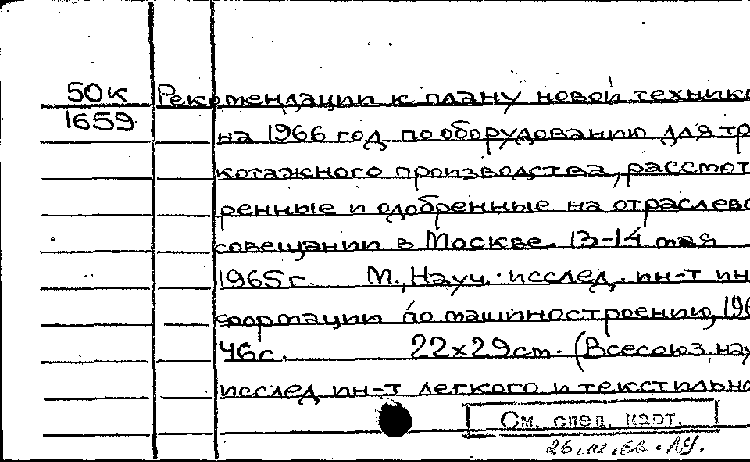 50к Рекомендации к плану новой техники
1659 на 1966 год по оборудованию для тр
котажного производства, рассмот
ренные и одобренные на отраслево
совещании в Москве. 13-14 мая
1965г. М., Науч.-исслед. ин-т ин
формации по машиностроению, 196
46с. 22х29см. (Всесоюз. на
исслед. ин-т легкого и текстильно
См. спец. карт.